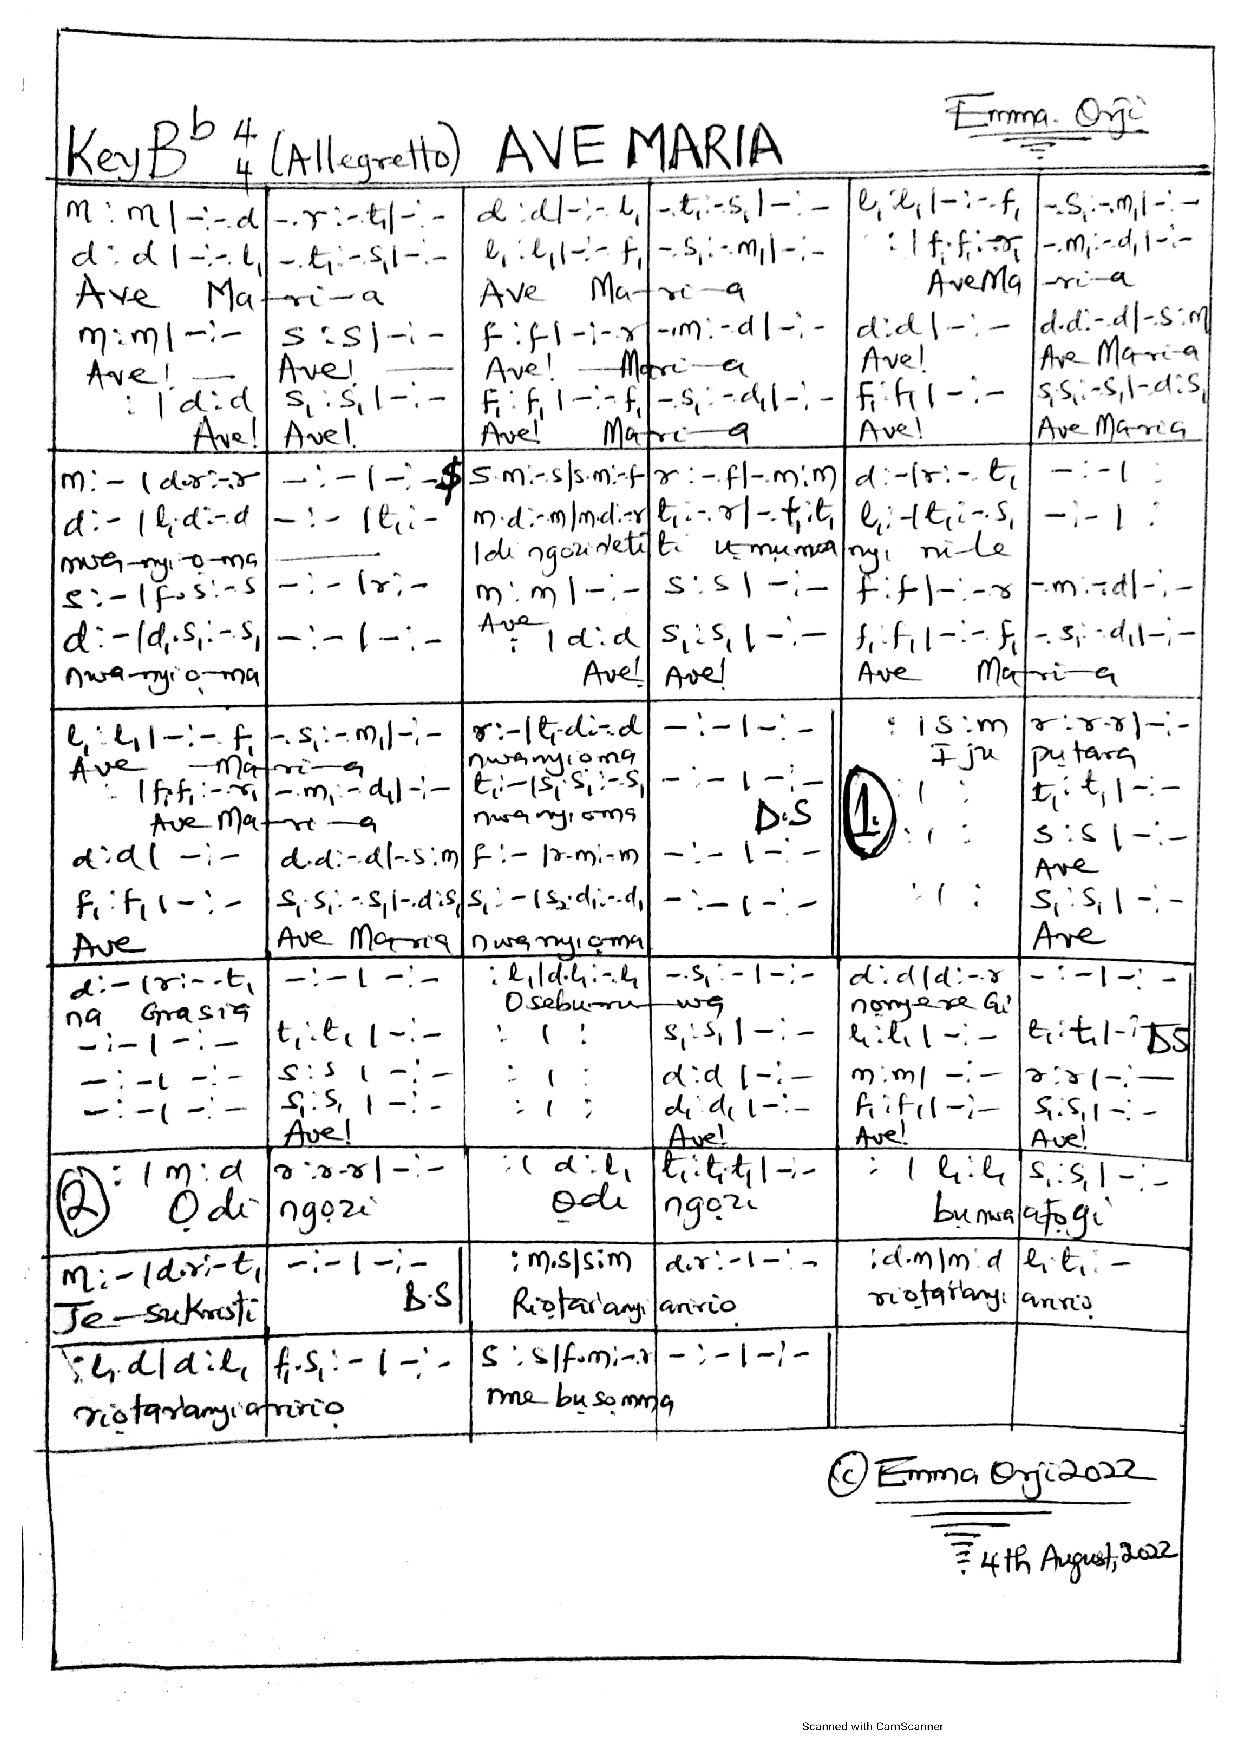 Emma. Orji
Key Bb 4/4 (Allegretto) AVE MARIA
m : m | - : - . d - . r : - . t₁ | - : - d : d | - : - . l₁ - . t₁ : - . s₁ | - : - l₁ : l₁ | - : - . f₁ - . s₁ : - . m₁ | - : -
d : d | - : - . l₁ - . t₁ : - . s₁ | - : - l₁ : l₁ | - : - . f₁ - . s₁ : - . m₁ | - : - : | f₁ . f₁ : - . r₁ - . m₁ : - . d₁ | - : -
Ave Ma-ri-a Ave Ma-ri-a Ave Ma-ri-a
m : m | - : - s : s | - : - f : f | - : - . r - . m : - . d | - : - d : d | - : - d . d : - . d | - . s : m
Ave! Ave! Ave! Mari-a Ave! Ave Mari-a
: | d : d s₁ : s₁ | - : - f₁ : f₁ | - : - . f₁ - . s₁ : - . d₁ | - : - f₁ : f₁ | - : - s₁ . s₁ : - . s₁ | - . d : s₁
Ave! Ave! Ave! Mari-a Ave! Ave Maria
m : - | d . r : - . r - : - | - : - $ s . m : - . s | s . m : - . f r : - . f | - . m : m d : - | r : - . t₁ - : - | :
d : - | l₁ . d : - . d - : - | t₁ : - m . d : - . m | m . d : - . r t₁ : - . r | - . t₁ : t₁ l₁ : - | t₁ : - . s₁ - : - | :
nwa-nyi ọ-ma Idi ngozi detiti umunwanyi ni-le
s : - | f . s : - . s - : - | r : - m : m | - : - s : s | - : - f : f | - : - . r - . m : - . d | - : -
d : - | d₁ . s₁ : - . s₁ - : - | - : - Ave : | d : d s₁ : s₁ | - : - f₁ : f₁ | - : - . f₁ - . s₁ : - . d₁ | - : -
nwa-nyi ọ-ma Ave! Ave! Ave Mari-a
l₁ : l₁ | - : - . f₁ - . s₁ : - . m₁ | - : - r : - | t₁ . d : - . d - : - | - : - : | s : m r : r . r | - : -
Ave Ma-ri-a nwanyioma I ju putara
: | f₁ . f₁ : - . r₁ - . m₁ : - . d₁ | - : - t₁ : - | s₁ . s₁ : - . s₁ - : - | - : - 1. : | : t₁ : t₁ | - : -
Ave Ma-ri-a nwanyioma D.S : | : s : s | - : -
d : d | - : - d . d : - . d | - . s : m f : - | r . m : - . m - : - | - : - Ave
f₁ : f₁ | - : - s₁ . s₁ : - . s₁ | - . d : s₁ s₁ : - | s₂ . d₁ : - . d₁ - : - | - : - : | : s₁ : s₁ | - : -
Ave Ave Maria nwanyiọma Ave
d : - | r : - . t₁ - : - | - : - : l₁ | d . l₁ : - . l₁ - . s₁ : - | - : - d : d | d : - . r - : - | - : -
na Grasia Osebunu-wa nonyere Gi
- : - | - : - t₁ : t₁ | - : - : | : s₁ : s₁ | - : - l₁ : l₁ | - : - t₁ : t₁ | - : DS
- : - | - : - s : s | - : - : | : d : d | - : - m : m | - : - r : r | - : -
- : - | - : - s₁ : s₁ | - : - : | : d₁ : d₁ | - : - f₁ : f₁ | - : - s₁ : s₁ | - : -
Ave! Ave! Ave! Ave!
2 : | m : d r : r . r | - : - : | d : l₁ t₁ : t₁ . t₁ | - : - : | l₁ : l₁ s₁ : s₁ | - : -
Ọdi ngọzi Ọdi ngọzi bu nwa afọ gi
m : - | d . r : - . t₁ - : - | - : - : m . s | s : m d . r : - | - : - : d . m | m : d l₁ . t₁ : -
Je-su Kristi D.S Riọtaranyi aririọ riọtaranyi aririọ
: l₁ . d | d : l₁ f₁ . s₁ : - | - : - s : s | f . m : - . r - : - | - : -
riọtaranyi aririọ nne bu sọmma
© Emma Orji 2022
4th August, 2022
Scanned with CamScanner